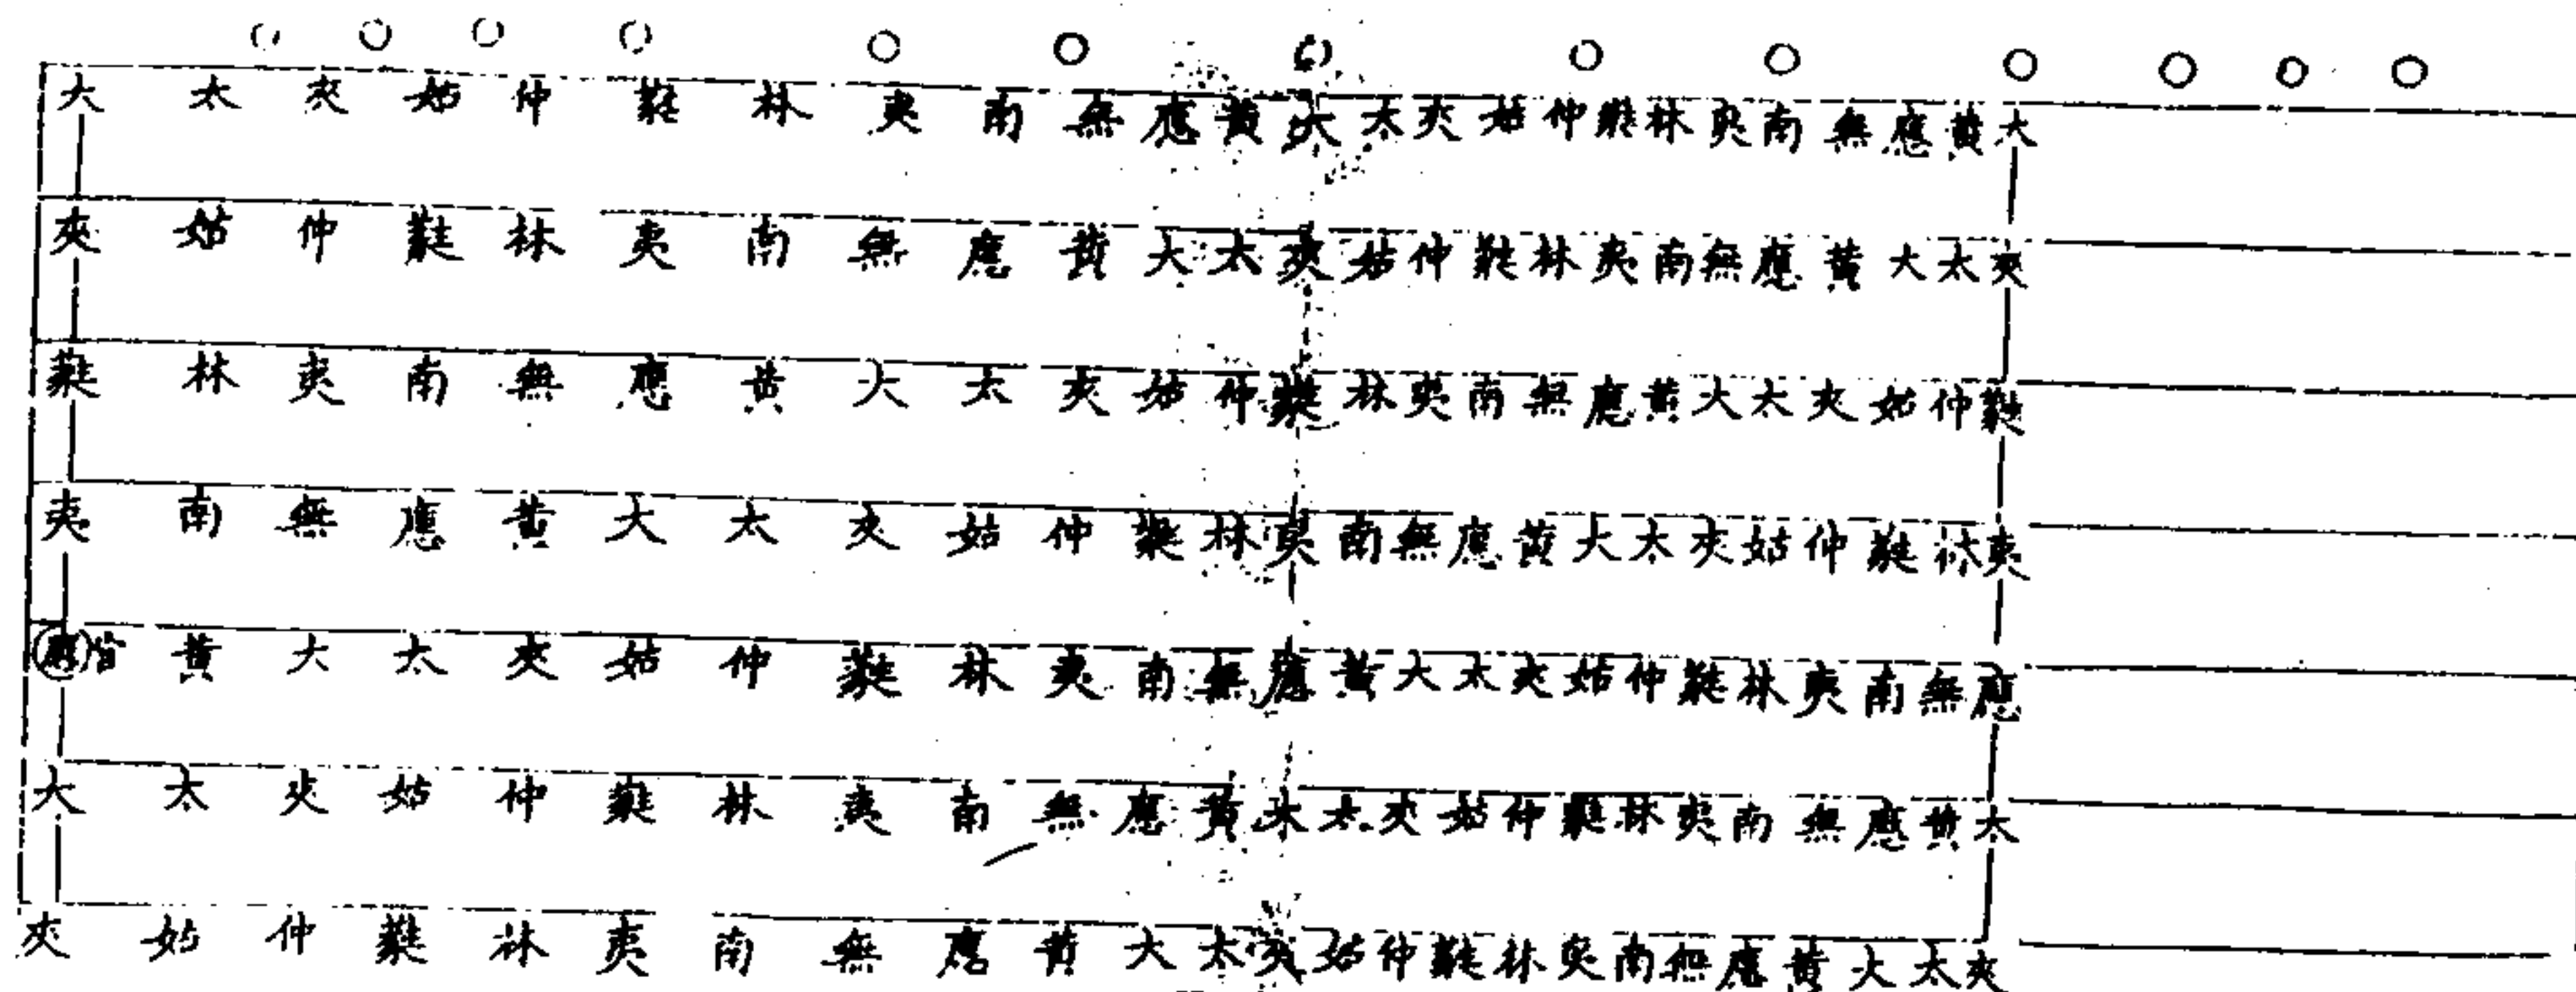 大 太 夾 姑 仲 蕤 林 夷 南 無 應 黃 大 太 夾 姑 仲 蕤 林 夷 南 無 應 黃 大
夾 姑 仲 蕤 林 夷 南 無 應 黃 大 太 夾 姑 仲 蕤 林 夷 南 無 應 黃 大 太 夾
蕤 林 夷 南 無 應 黃 大 太 夾 姑 仲 蕤 林 夷 南 無 應 黃 大 太 夾 姑 仲 蕤
夷 南 無 應 黃 大 太 夾 姑 仲 蕤 林 夷 南 無 應 黃 大 太 夾 姑 仲 蕤 林 夷
應 黃 大 太 夾 姑 仲 蕤 林 夷 南 無 應 黃 大 太 夾 姑 仲 蕤 林 夷 南 無 應
大 太 夾 姑 仲 蕤 林 夷 南 無 應 黃 大 太 夾 姑 仲 蕤 林 夷 南 無 應 黃 大
夾 姑 仲 蕤 林 夷 南 無 應 黃 大 太 夾 姑 仲 蕤 林 夷 南 無 應 黃 大 太 夾